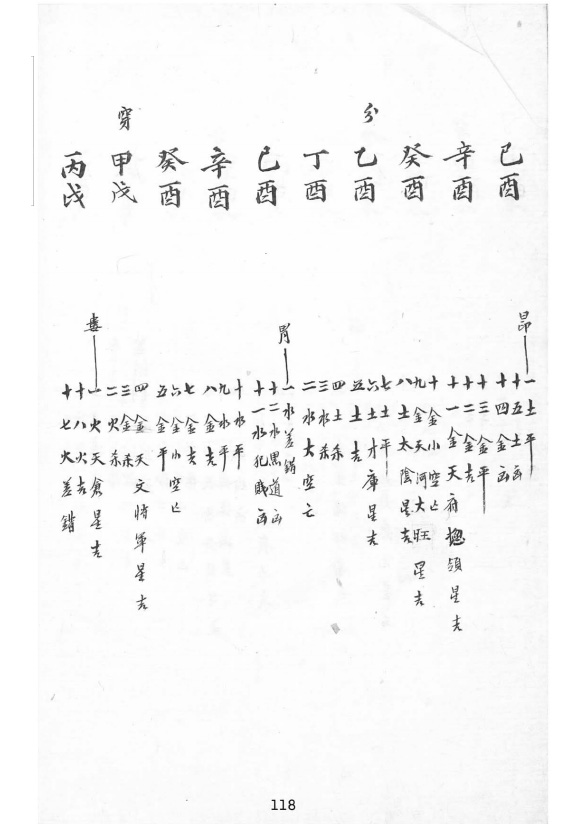 己酉
辛酉
癸酉
分
乙酉
丁酉
己酉
辛酉
癸酉
穿
甲戌
丙戌
昴
一土平
十五土凶
十四金凶
十三金平
十二金吉
十一金天府總領星吉
十金小空亡
九金天河大旺星吉
八土太陰星吉
七土平
六土才庫星吉
五土吉
四土杀
三水杀
二水大空亡
胃
一水差錯
十二水黑道凶
十一水犯賊凶
十水平
九水平
八金吉
七金吉
六金小空亡
五金平
四金天文将軍星吉
三金杀
二火杀
婁
一火天倉星吉
十八火吉
十七火差錯
118